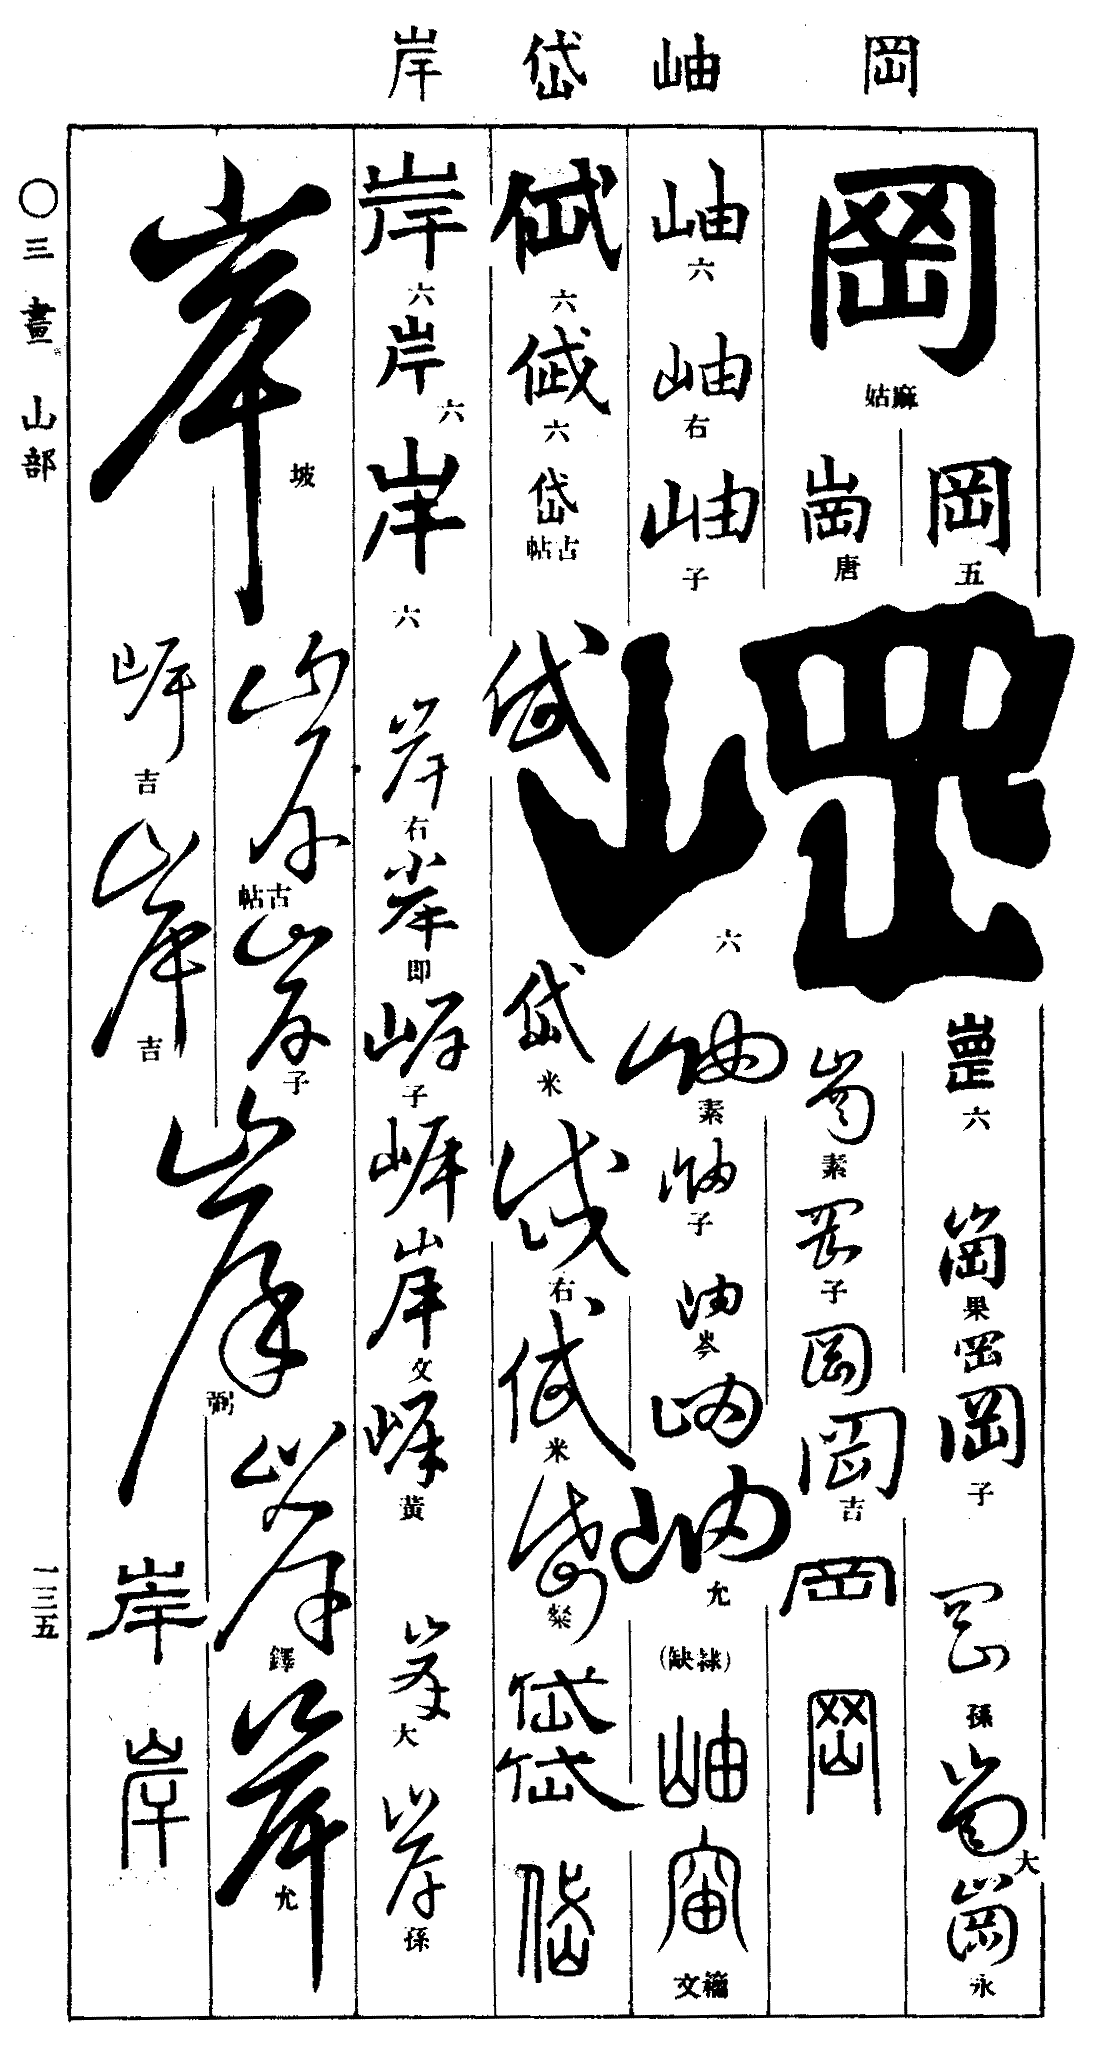 岡
岫
岱
岸
○三畫 山部
一三五
岡
麻姑
岡
五
岡
六
崗
六
崗
果
岡
岡
子
岡
孫
崗
大
崗
永
崗
唐
崗
素
岡
子
岡
岡
吉
岡
岡
岫
六
岫
右
岫
子
岫
素
岫
子
岫
岑
岫
岫
允
(隸缺)
岫
宙
籀文
岱
六
岱
六
岱
古帖
岱
岱
米
岱
右
岱
米
岱
粲
岱
岱
岱
岸
六
岸
六
岸
六
岸
右
岸
即
岸
子
岸
岸
文
岸
黃
岸
大
岸
孫
岸
坡
岸
古帖
岸
子
岸
弼
岸
鐸
岸
允
岸
吉
岸
吉
岸
岸